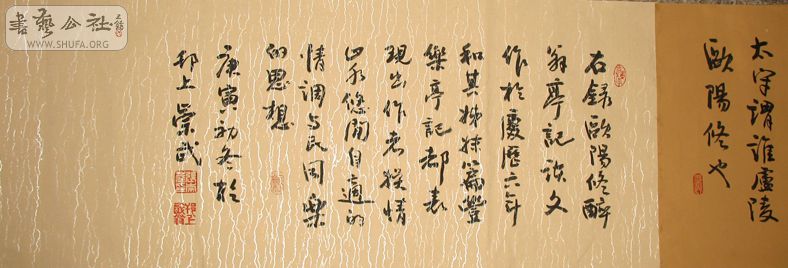 太守謂誰廬陵
歐陽修也
右録歐陽修醉
翁亭記該文
作於慶歷六年
和其姊妹篇豐
樂亭記都表
現出作者縱情
山水悠閒自適的
情調与民同樂
的思想
庚寅初冬於
邗上崇
書藝公社
WWW.SHUFA.ORG